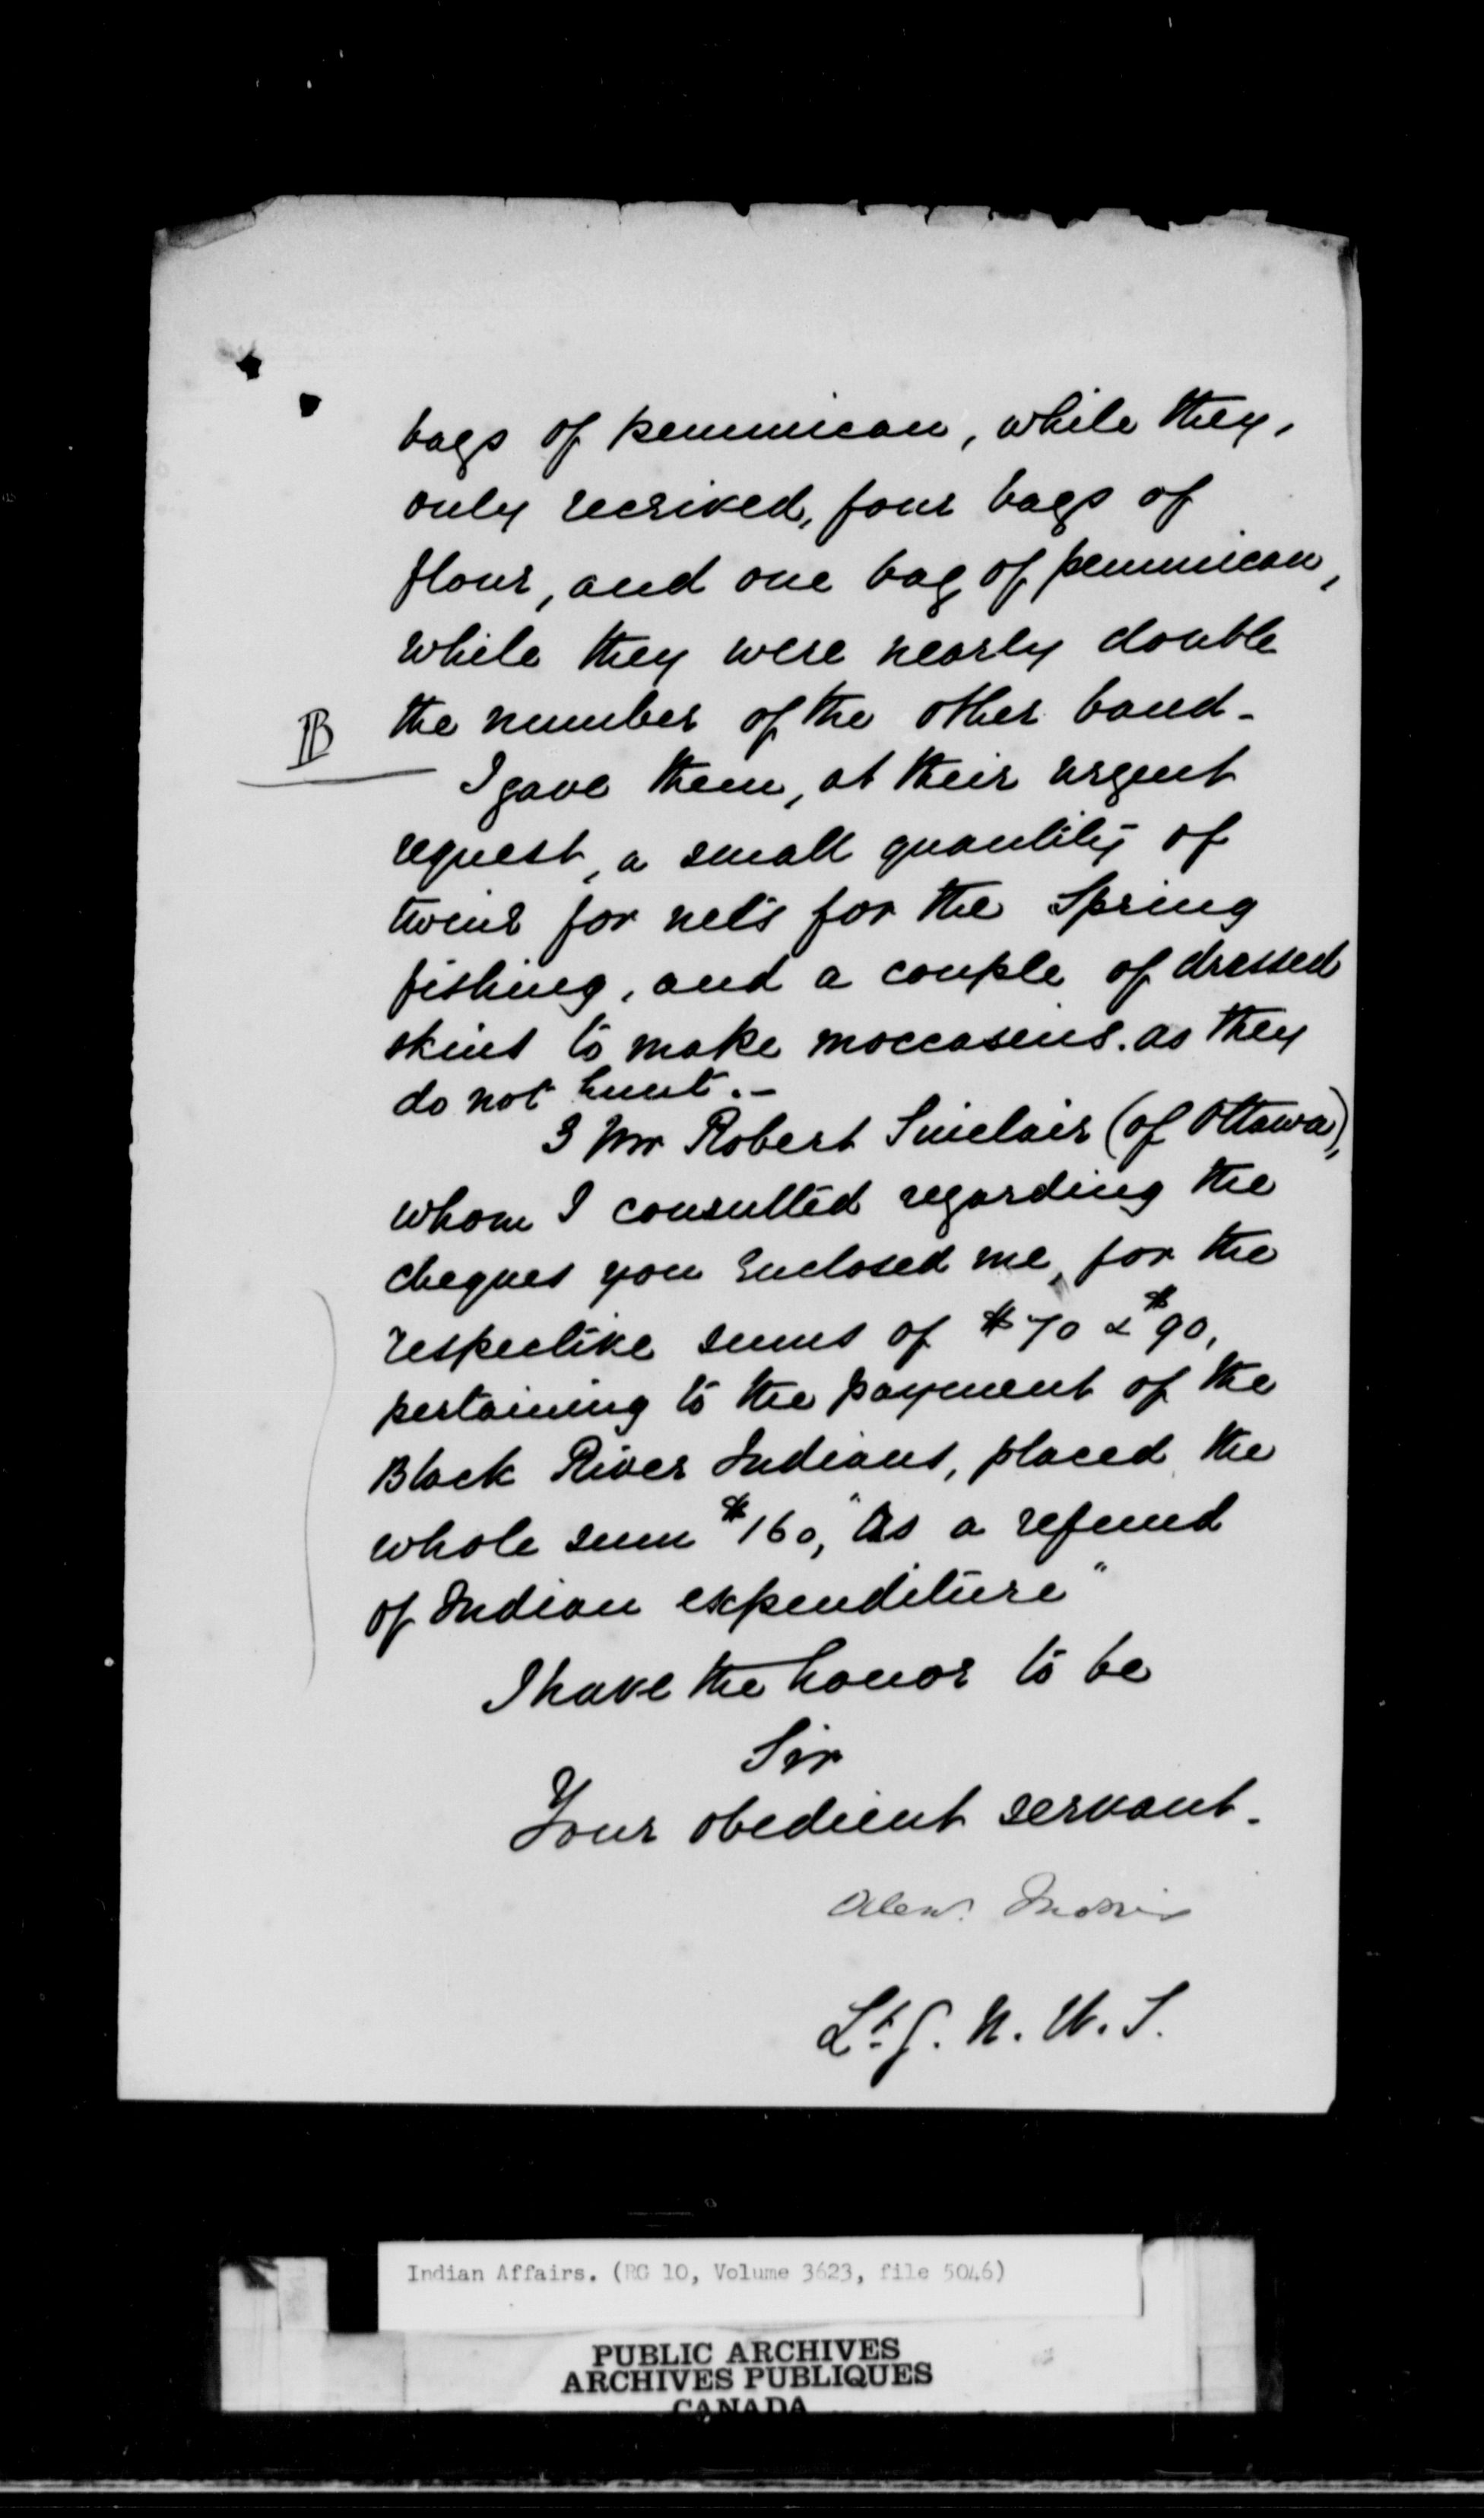 bags of pemmican, while they,
only received, four bags of
flour, and one bag of pemmican,
while they were nearly double
B the number of the other band -
I gave them, at their urgent
request, a small quantity of
twine for nets for the Spring
fishing, and a couple of dressed
skins to make moccasins. as they
do not hunt. -
3 Mr Robert Sinclair (of Ottawa),
whom I consulted regarding the
cheques you enclosed me, for the
respective sums of $70 & $90,
pertaining to the payment of the
Black River Indians, placed the
whole sum $160, "as a refund
of Indian expenditure"
I have the honor to be
Sir
Your obedient servant.
Alex. Morris
Lt. G. N. W. T.
Indian Affairs. (RG 10, Volume 3623, file 5046)
PUBLIC ARCHIVES
ARCHIVES PUBLIQUES
CANADA